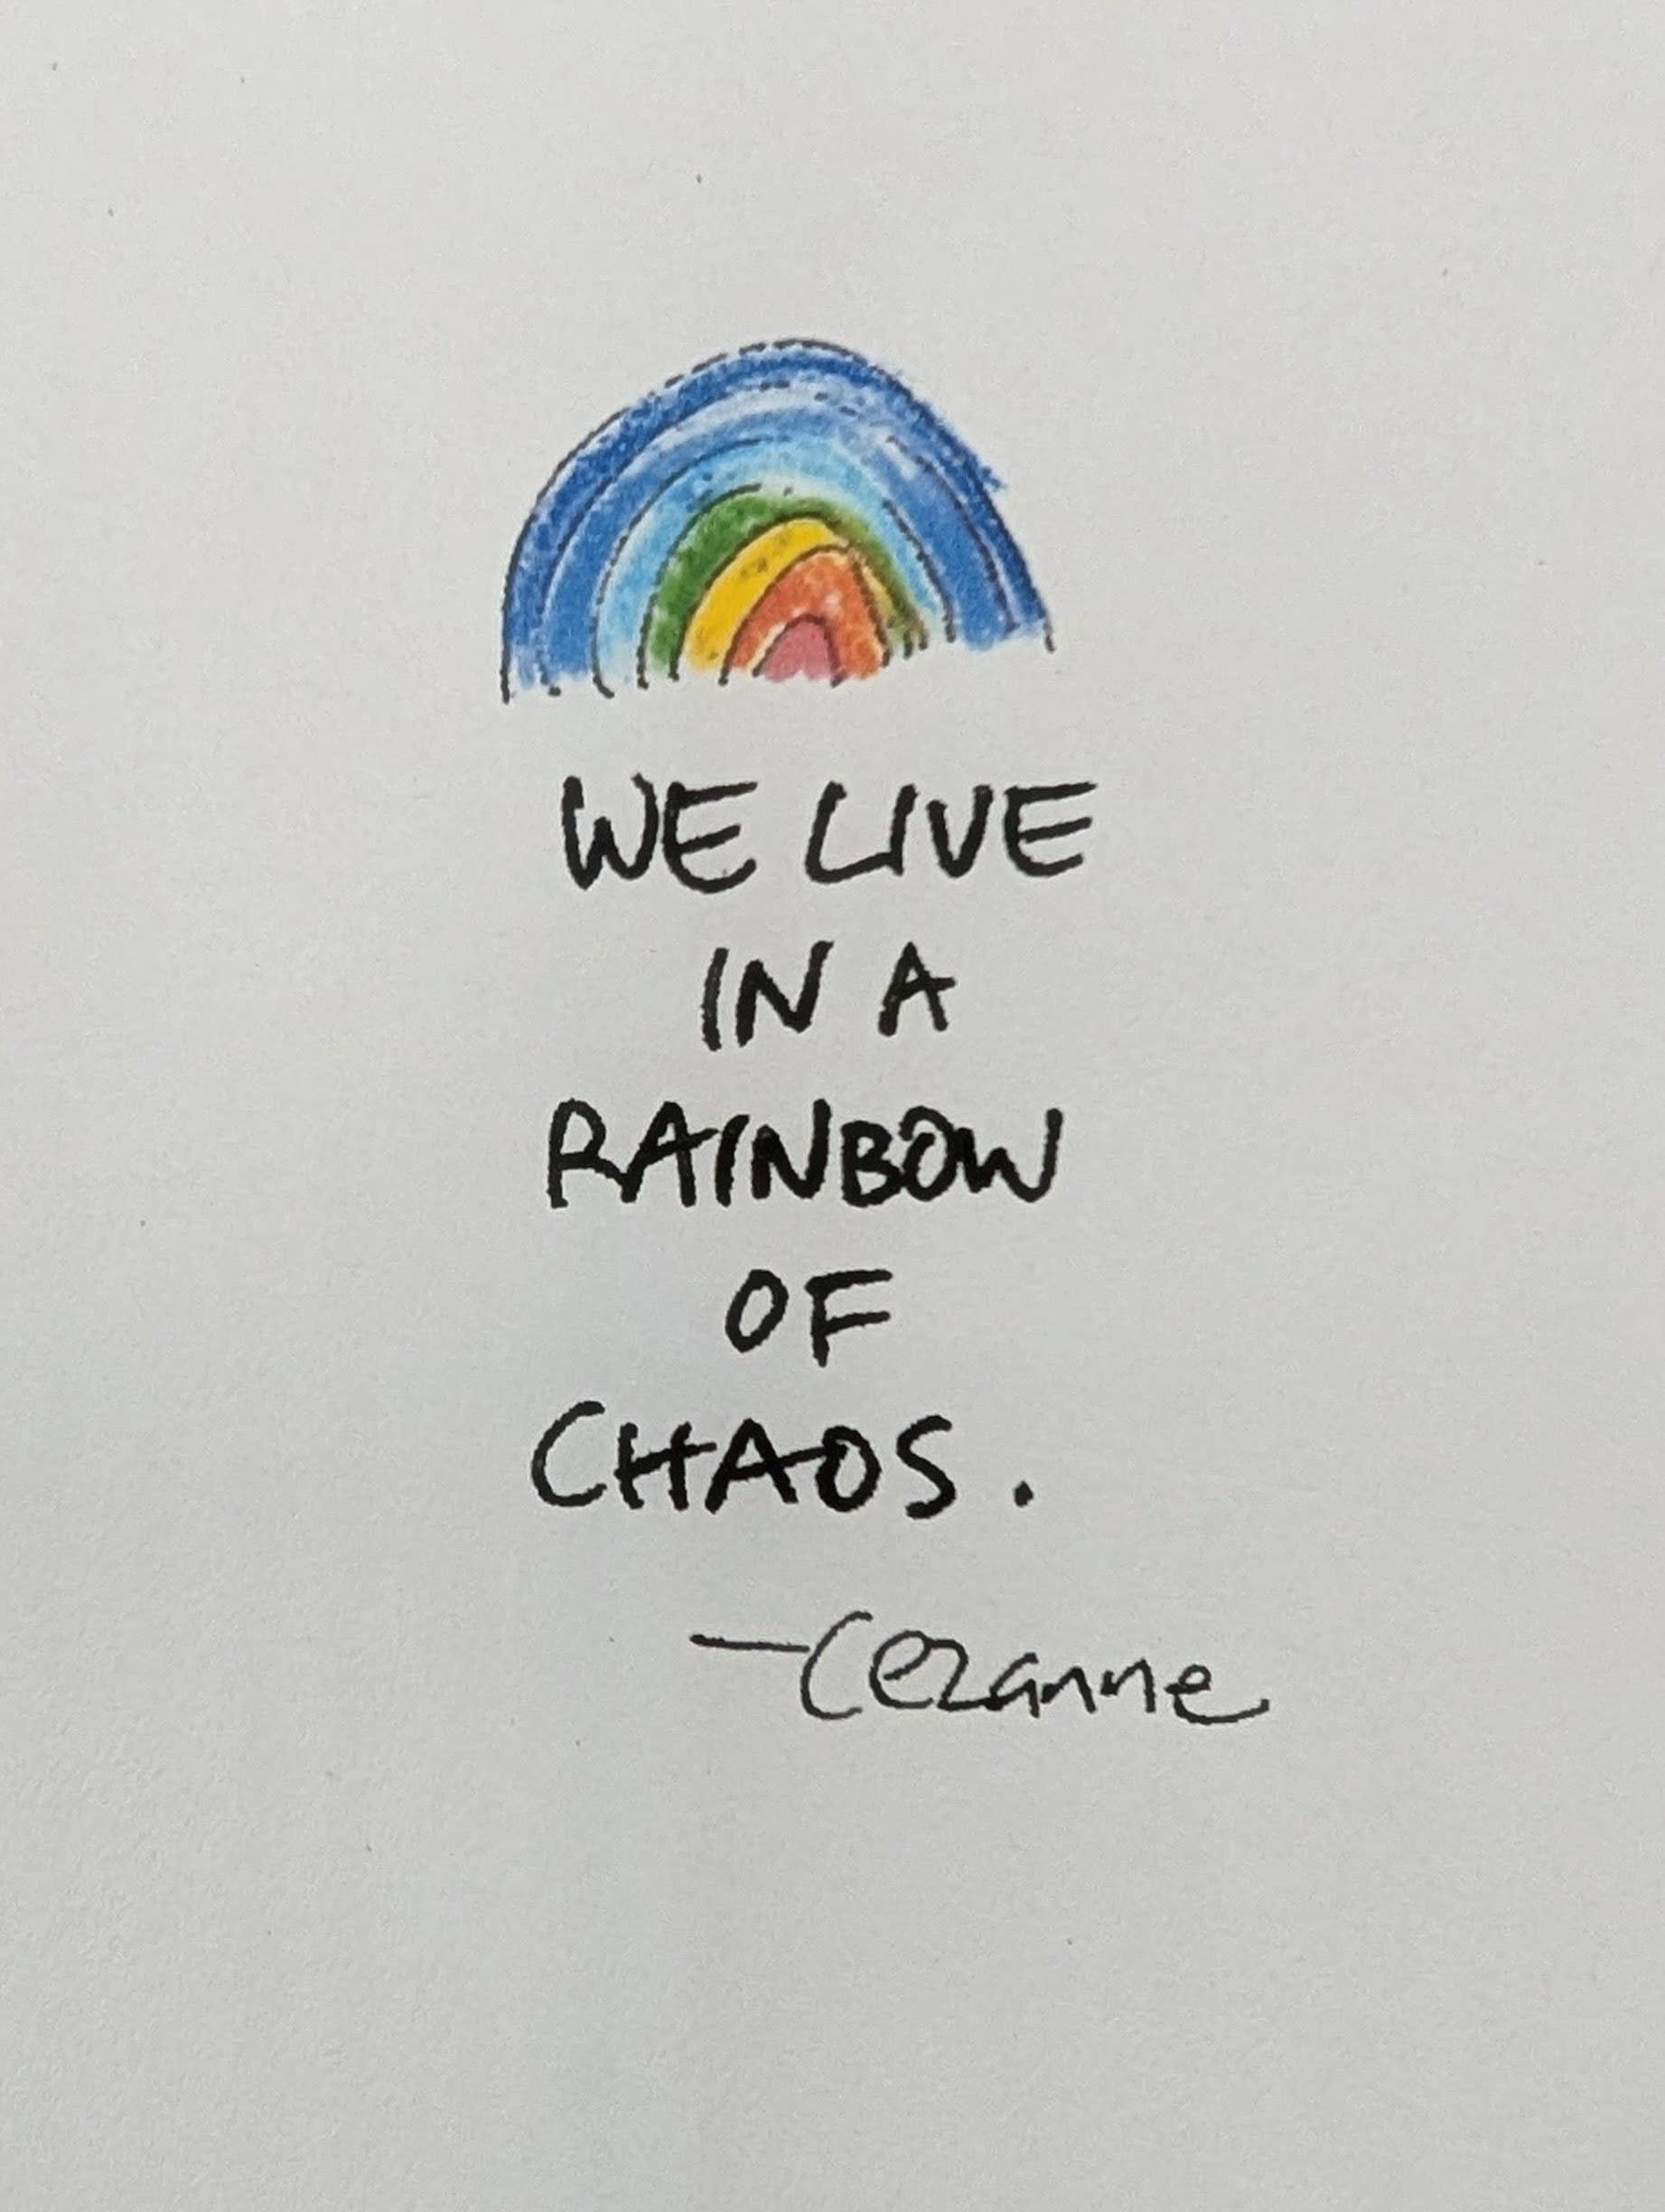 WE LIVE
IN A
RAINBOW
OF
CHAOS.
—Cezanne